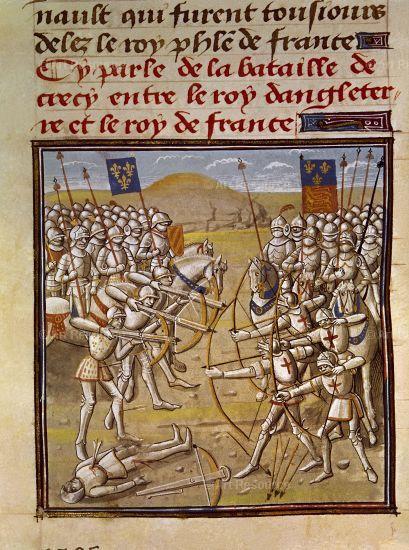 nault qui furent tousiours
delez le roy phlē de france
Cy parle de la bataille de
crecy entre le roy dangleter
re et le roy de france